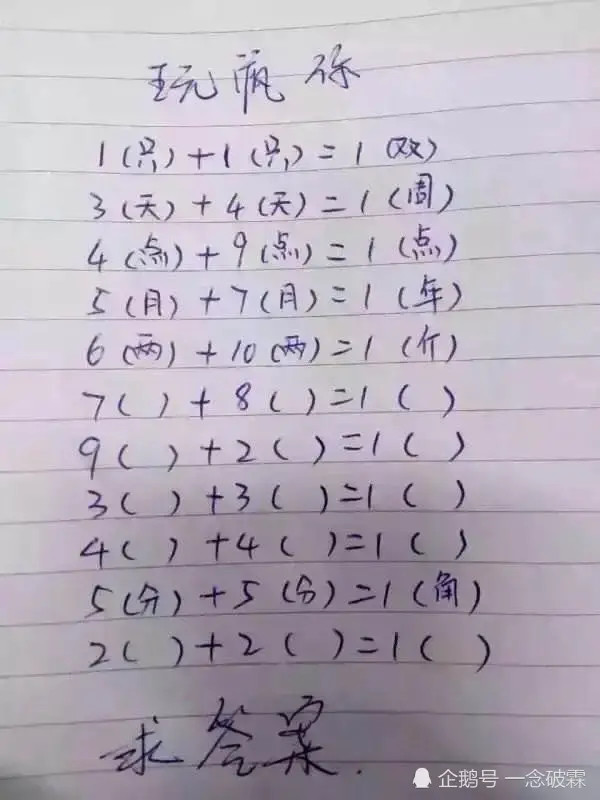 玩疯你
1(只)+1(只)=1(双)
3(天)+4(天)=1(周)
4(点)+9(点)=1(点)
5(月)+7(月)=1(年)
6(两)+10(两)=1(斤)
7( )+8( )=1( )
9( )+2( )=1( )
3( )+3( )=1( )
4( )+4( )=1( )
5(分)+5(分)=1(角)
2( )+2( )=1( )
求答案.
企鹅号 一念破霖